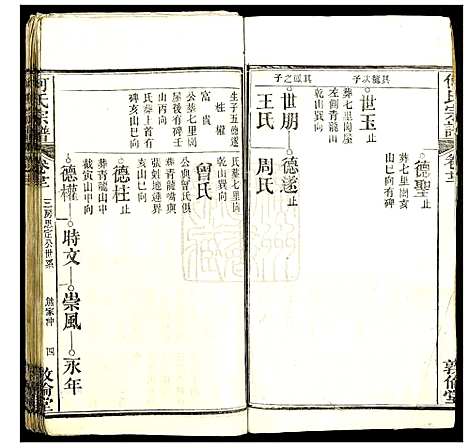 何氏宗譜
卷廿二
敦倫堂
德聖止
葬七里閣亥
山巳向有碑
其龍次子
世玉止
葬七里閣屋
左側青龍山
乾山巽向
其處之子
世朋
德遂止
王氏
周氏
氏葬七里閣
乾山巽向
生子五德遂
性權
富貴
公葬七里閣
屋後有碑壬
山丙向
氏葬上首有
碑亥山巳向
曾氏
公與曾氏俱
葬青龍嘴與
張劍地連界
乾山巽向
德柱止
葬青龍山中
裁寅山申向
德權
時文
崇風
永年
何氏宗譜
卷廿二
三房思定公世系
熊家冲
四
敦倫堂